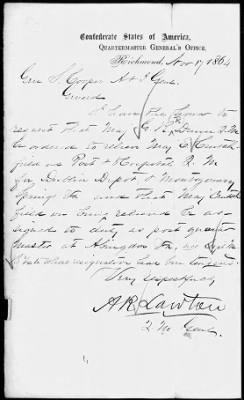 Confederate States of America,
Quartermaster General's Office,
Richmond, Nov 17 1864
Gen S Cooper A & I Genl.
General
I have the honor to
request that Maj
be ordered to relieve Maj
field as Post & Hospital Q. M.
for Dublin Depot & Montgomery
Springs Va and that Maj
field on being relieved be as-
signed to duty as post quarter
master at Abingdon Va,
whose resignation has been
Very respectfully
A R Lawton
Q M Genl.